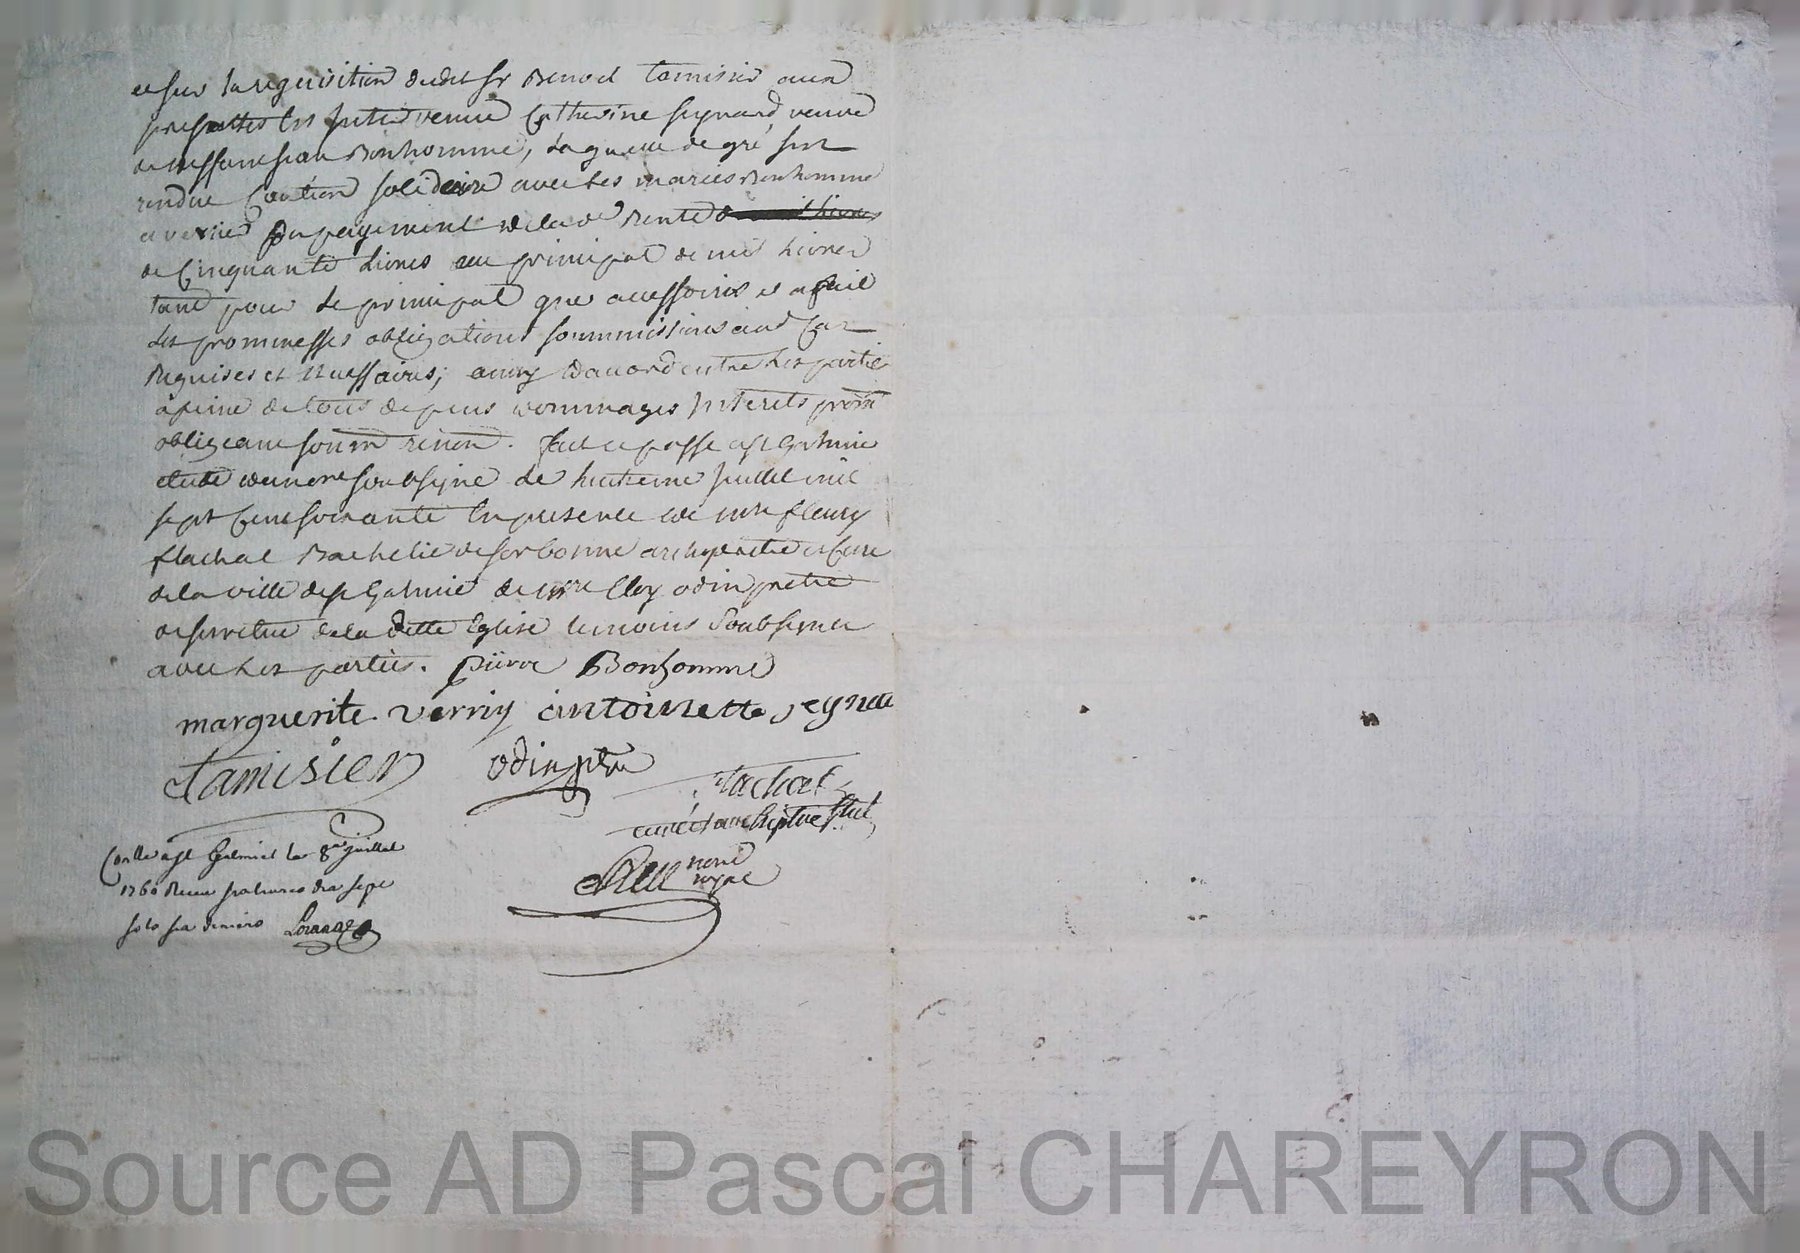 et sur la requisition dudit Sr Benoit tamisier aux
presattes est Intervenue Catherine seynard veuve
de messire jean Bonhomme, Laquelle de gré sest
rendue Caution solidaire avec les mariés Bonhomme
a verrier du payement de lad rente
de Cinquante Livres au principal de mil Livres
tant pour Le principal que accessoires et a fait
les prommesses obligations soummissions aud Cas
Requises et Necessaires; ainsy d'accord entre Les parties
a peine de tous depens dommages Interets prom
obligeant soum renon. fait et passé a St Galmier
etude du nore soubsigné le huitieme Juillet mil
sept Cent soixante En presence de mre fleury
flachat Bachelier de sorbonne archyprêtre et Curé
de la ville de St Galmier de mre Eloy odin pretre
deservitue de la ditte Eglise temoins Soubsignes
avec Les parties. pierre Bonhomme
marguerite verriy antoinette seynard
tamisier odin ptre
flachat
curé et archiptre
nore
royal
Conlle a St Galmier Le 8me juillet
1760 Recu
sols six deniers